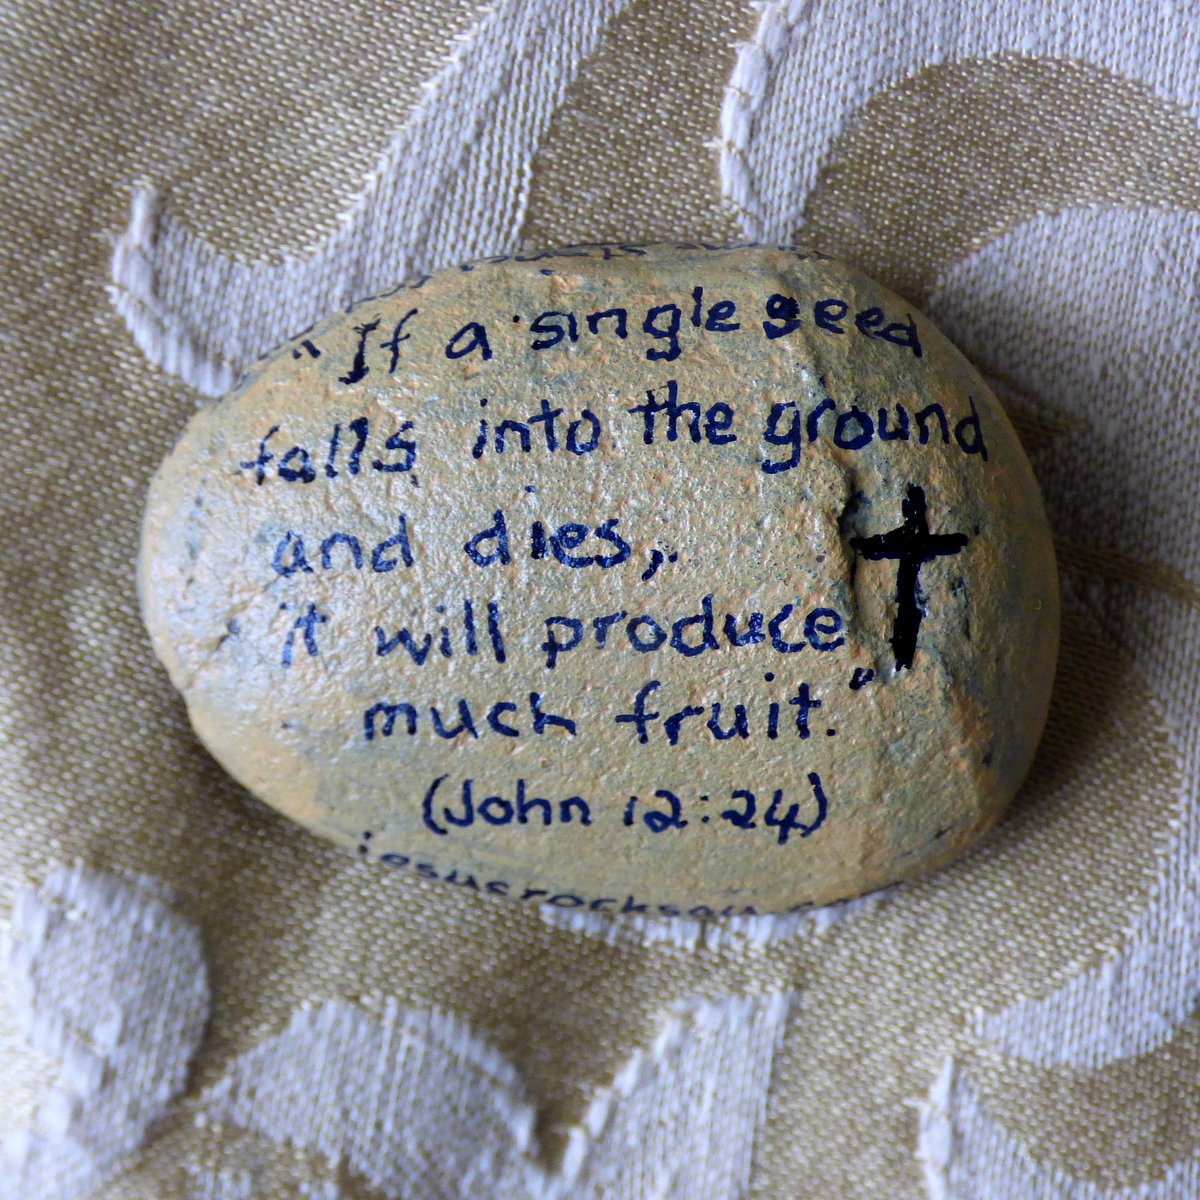 " If a single seed
falls into the ground
and dies,
it will produce
much fruit."
(John 12:24)